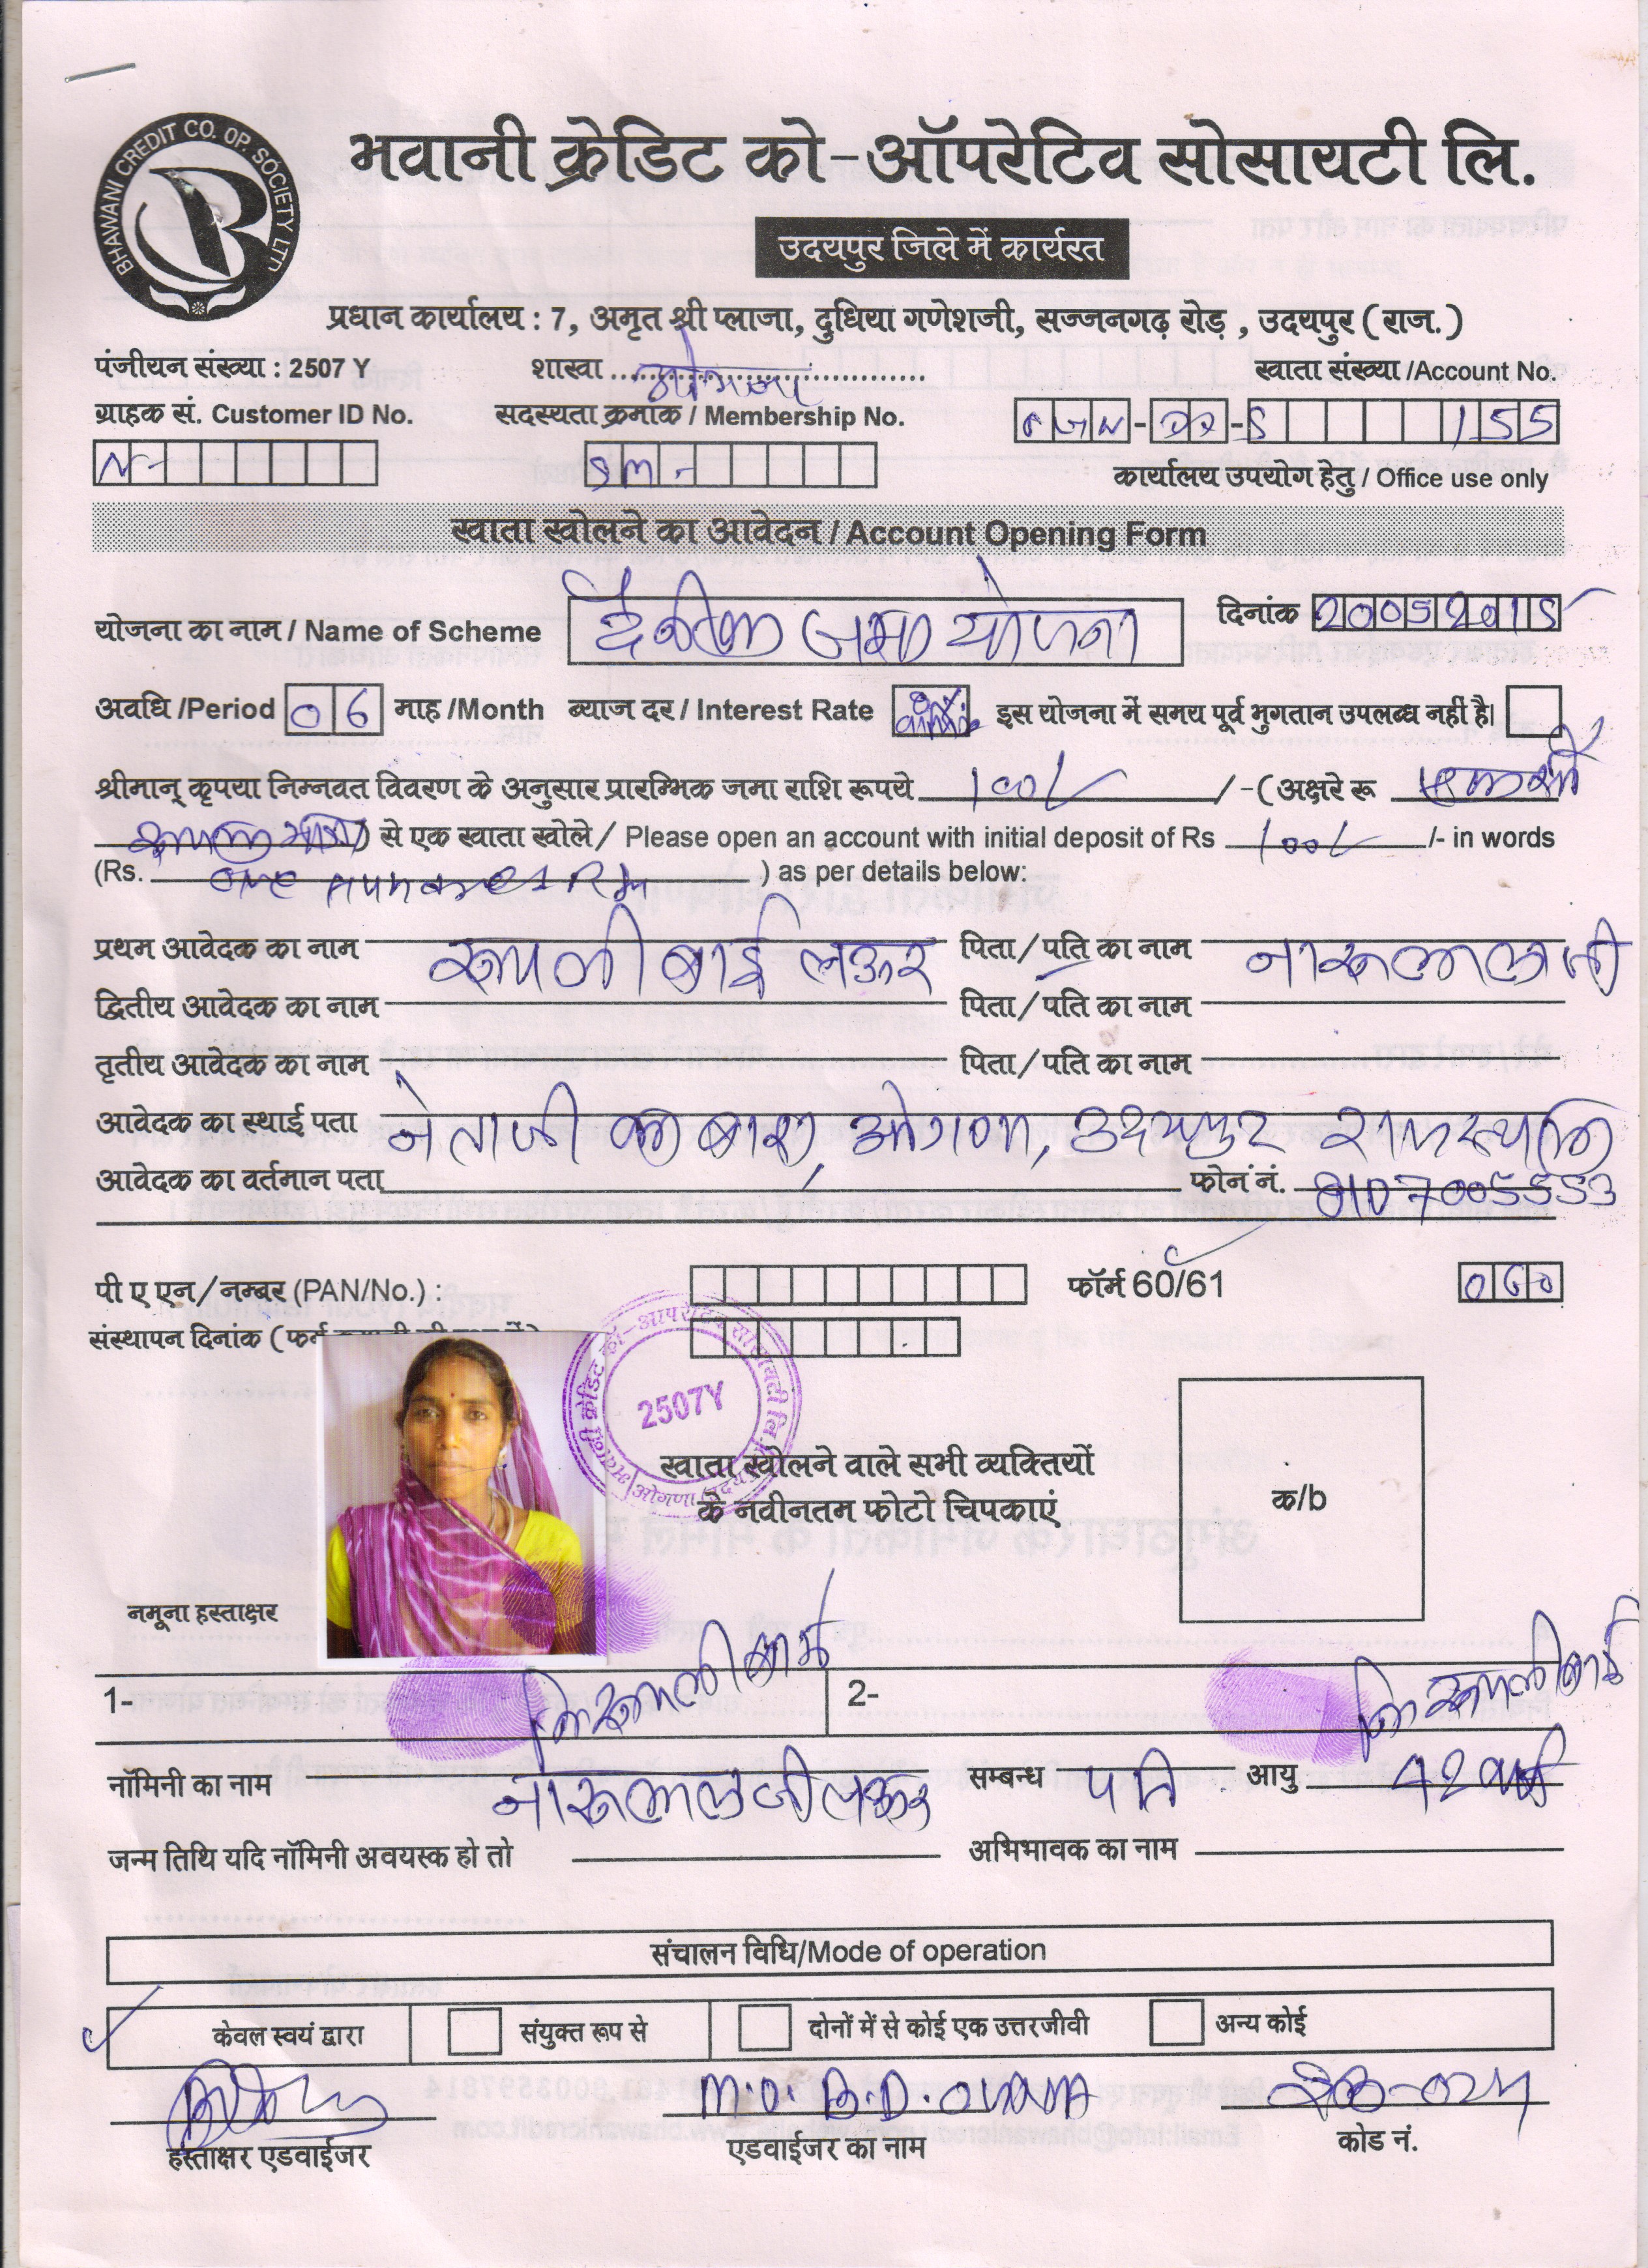 BHAWANI CREDIT CO. OP. SOCIETY LTD
भवानी क्रेडिट को-ऑपरेटिव सोसायटी लि.
उदयपुर जिले में कार्यरत
प्रधान कार्यालय : 7, अमृत श्री प्लाजा, दुधिया गणेशजी, सज्जनगढ़ रोड़ , उदयपुर ( राज. )
पंजीयन संख्या : 2507 Y शाखा खाता संख्या /Account No.
ग्राहक सं. Customer ID No. सदस्यता क्रमांक / Membership No.
N- SM - S 155
कार्यालय उपयोग हेतु / Office use only
खाता खोलने का आवेदन / Account Opening Form
योजना का नाम / Name of Scheme दैनिक जमा योजना दिनांक 20052015
अवधि /Period 06 माह /Month ब्याज दर / Interest Rate इस योजना में समय पूर्व भुगतान उपलब्ध नहीं है।
श्रीमान् कृपया निम्नवत विवरण के अनुसार प्रारम्भिक जमा राशि रूपये 100/ /-( अक्षरे रू एक सौ
रूपये मात्र ) से एक खाता खोले / Please open an account with initial deposit of Rs 100/ /- in words
(Rs. ) as per details below:
प्रथम आवेदक का नाम रूपली बाई लऊर पिता / पति का नाम नारूलालजी
द्वितीय आवेदक का नाम पिता / पति का नाम
तृतीय आवेदक का नाम पिता / पति का नाम
आवेदक का स्थाई पता नेताजी का बारा, ओगणा, उदयपुर राजस्थान
आवेदक का वर्तमान पता फोन नं. 8107005553
पी ए एन / नम्बर (PAN/No.) : फॉर्म 60/61 060
संस्थापन दिनांक ( फर्म
2507Y
खाता खोलने वाले सभी व्यक्तियों
के नवीनतम फोटो चिपकाएं
क/b
नमूना हस्ताक्षर
1- नि रूपली बाई 2- नि रूपली बाई
नॉमिनी का नाम नारूलालजी लऊर सम्बन्ध पति आयु 42 वर्ष
जन्म तिथि यदि नॉमिनी अवयस्क हो तो अभिभावक का नाम
संचालन विधि/Mode of operation
केवल स्वयं द्वारा संयुक्त रूप से दोनों में से कोई एक उत्तरजीवी अन्य कोई
हस्ताक्षर एडवाईजर एडवाईजर का नाम कोड नं.